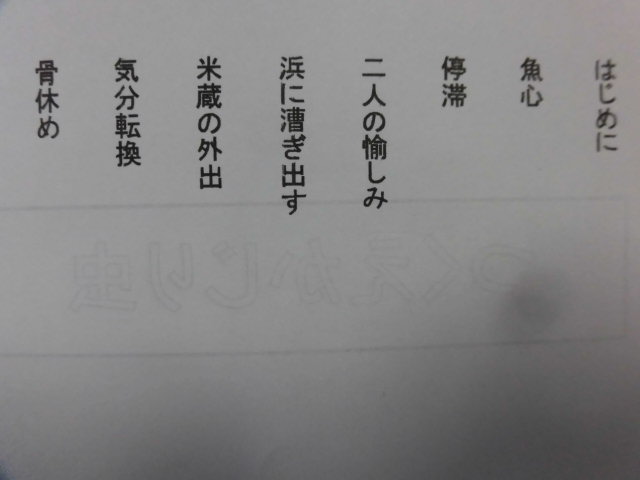 はじめに
魚心
停滞
二人の愉しみ
浜に漕ぎ出す
米蔵の外出
気分転換
骨休め
つくえかじり虫